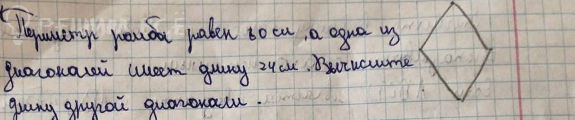 Периметр ромба равен 80 см, а одна из
диагоналей имеет длину 24 см. Вычислите
длину другой диагонали.